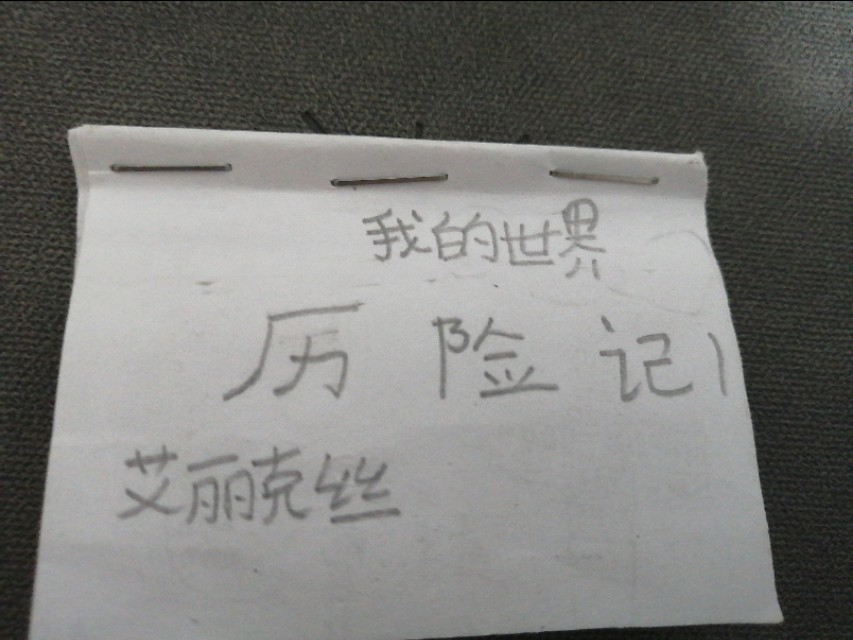 我的世界
历险记1
艾丽克丝